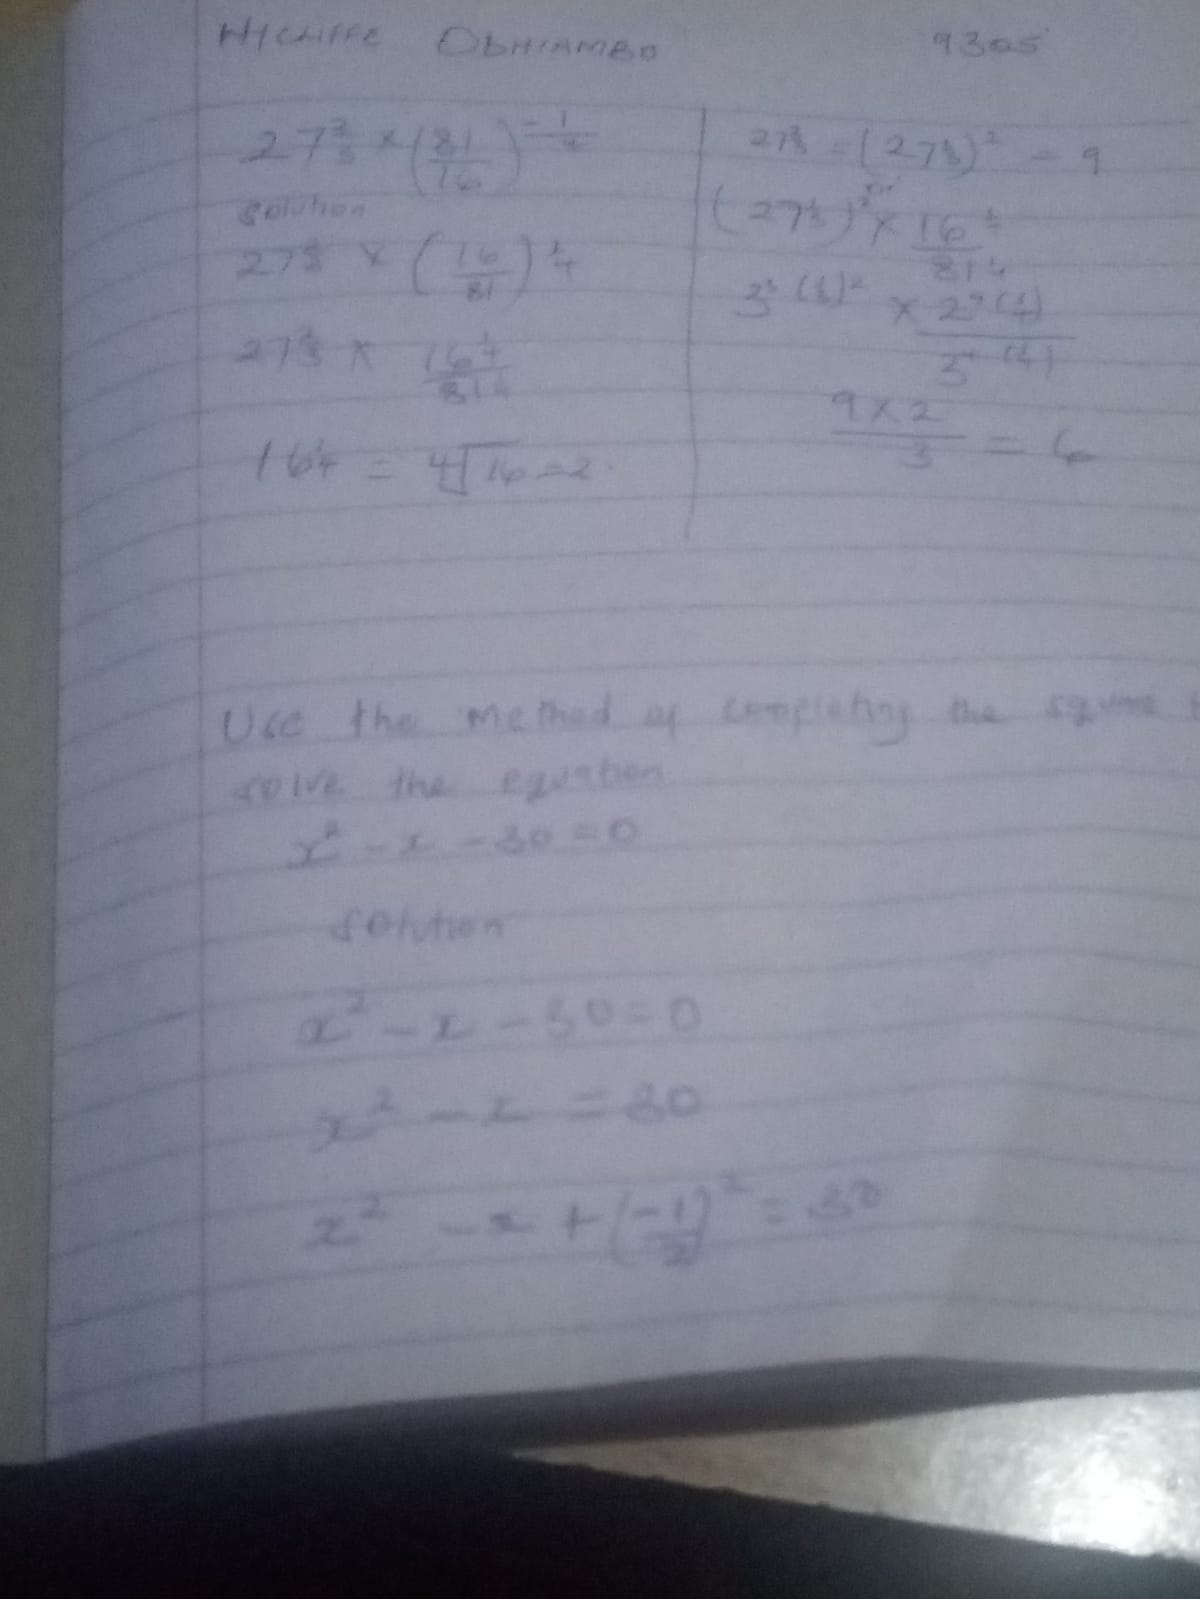 WYCLIFFE ODHIAMBO 9305
27^(2/3) × (81/16)^(-1/4)
solution
27^(2/3) × (16/81)^(1/4)
27^(2/3) × 16^(1/4)/81^(1/4)
16^(1/4) = ∜16 = 2.
27^(2/3) = (27^(1/3))² = 9
(27^(1/3))² × 16^(1/4)/81^(1/4)
3^3(1/3)² × 2^4(1/4)/3^4(1/4)
9×2/3 = 6
Use the method of completing the square
solve the equation
x² - x - 30 = 0
solution
x² - x - 30 = 0
x² - x = 30
x² - x + (-1/2)² = 30